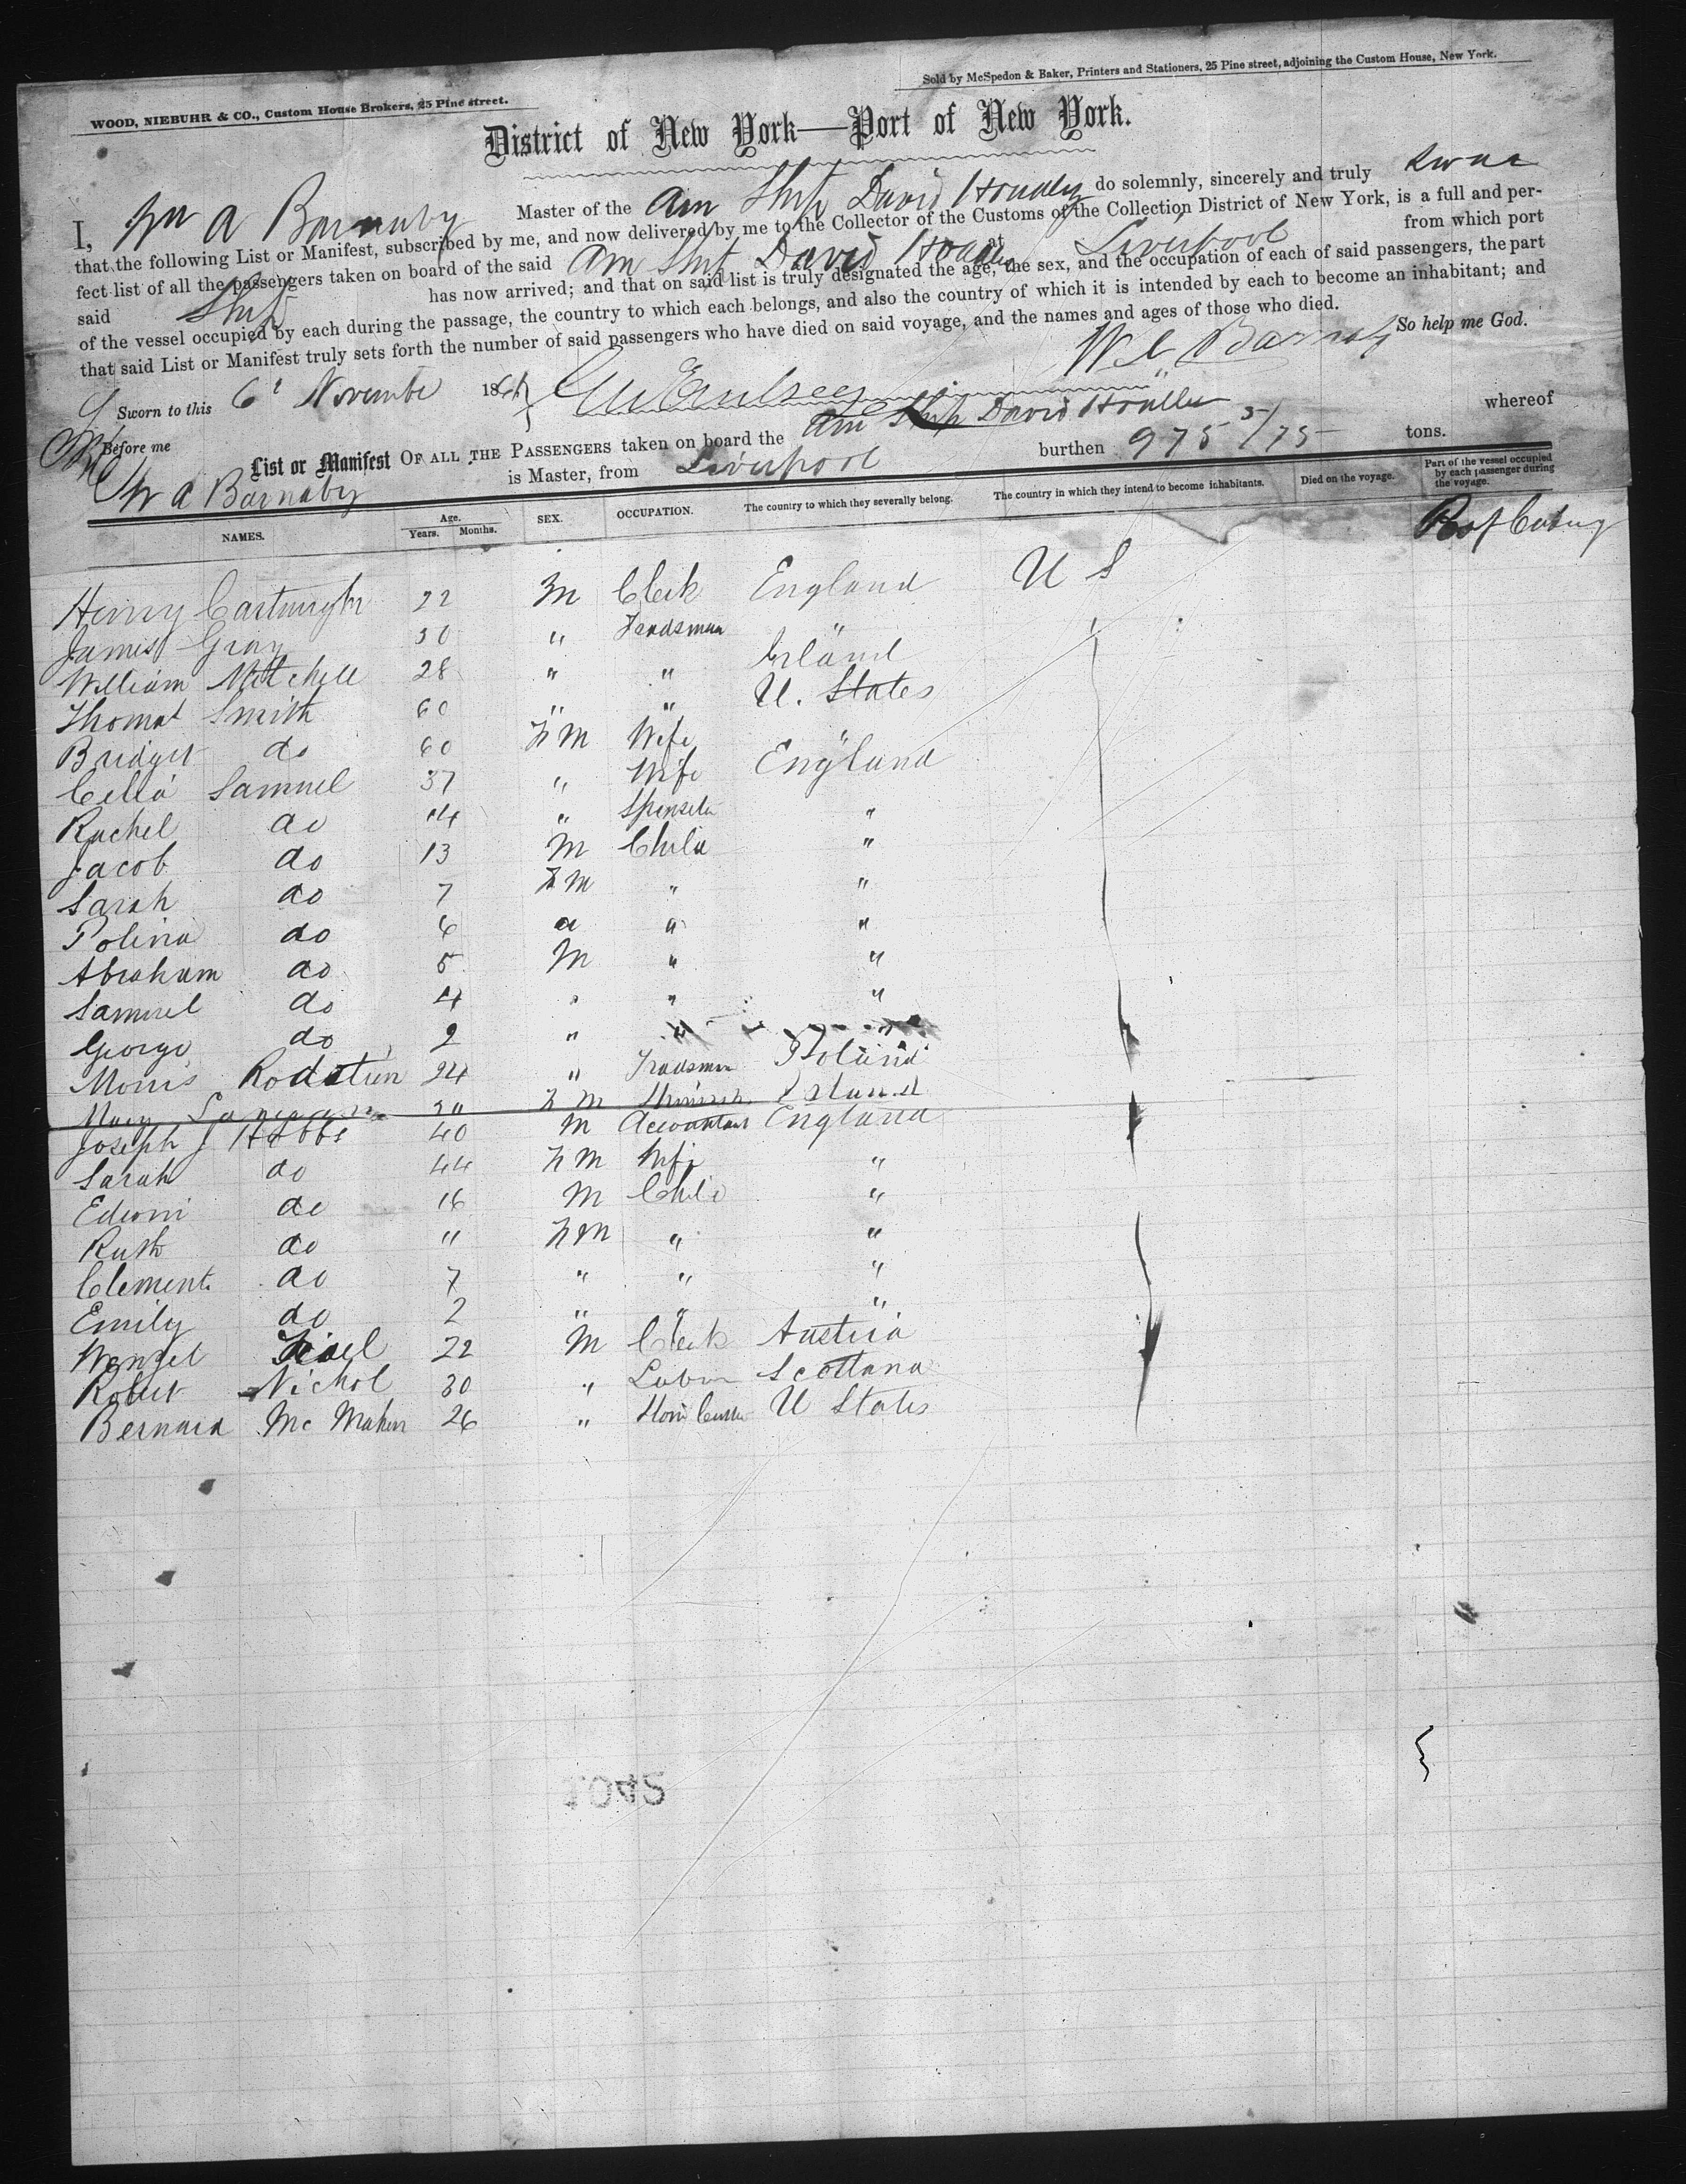 WOOD, NIEBUHR & CO., Custom House Brokers, 25 Pine street.
Sold by McSpedon & Baker, Printers and Stationers, 25 Pine street, adjoining the Custom House, New York.
District of New York—Port of New York.
I, Wm A Barnaby Master of the Am Ship David Hoadley do solemnly, sincerely and truly swear
that the following List or Manifest, subscribed by me, and now delivered by me to the Collector of the Customs of the Collection District of New York, is a full and per-
fect list of all the passengers taken on board of the said Am Ship David Hoadley at Liverpool from which port
said Ship has now arrived; and that on said list is truly designated the age, the sex, and the occupation of each of said passengers, the part
of the vessel occupied by each during the passage, the country to which each belongs, and also the country of which it is intended by each to become an inhabitant; and
that said List or Manifest truly sets forth the number of said passengers who have died on said voyage, and the names and ages of those who died.
So help me God.
Barnaby
Sworn to this 6t November 186
Before me
List or Manifest OF ALL THE PASSENGERS taken on board the Am Ship David Hoadley whereof
W A Barnaby is Master, from Liverpool burthen 975 5/75 tons.
NAMES. Age. Years. Months. SEX. OCCUPATION. The country to which they severally belong. The country in which they intend to become inhabitants. Died on the voyage. Part of the vessel occupied by each passenger during the voyage.
Henry Cartwright 22 M Clerk England U S
James Gray 30 " "
William Mitchell 28 " " Irland
Thomas Smith 60 " " U. States
Bridget do 60 F M Wife "
Celia Samuel 37 " Wife England
Rachel do 14 " Spinster "
Jacob do 13 M Child "
Sarah do 7 F M " "
Polina do 6 " " "
Abraham do 5 M " "
Samuel do 4 " " "
George do 2 " " "
Morris Rodstien 24 " Tradsman Poland
Mary F M
Joseph J Hobbs 40 M Accountant England
Sarah do 44 F M Wife "
Edwin do 16 M Child "
Ruth do 11 F M " "
Clement do 7 " " "
Emily do 2 " " "
Wenzel 22 M Clerk Austria
Robert Nichol 30 " Labor Scotland
Bernard Mc Mahon 26 " U States
1042